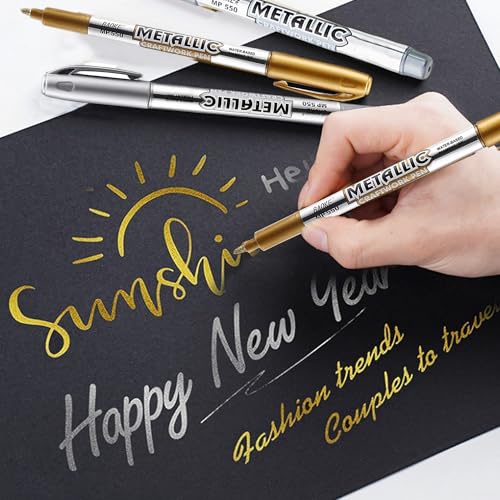 METALLIC
MP 550
BAOKE
MP 550
METALLIC
CRAFTWORK PEN
WATER-BASED
METALLIC
MP 550
BAOKE
MP 550
METALLIC
CRAFTWORK PEN
WATER-BASED
Hel
Sunshi
Happy New Year
Fashion trends
Couples to travel